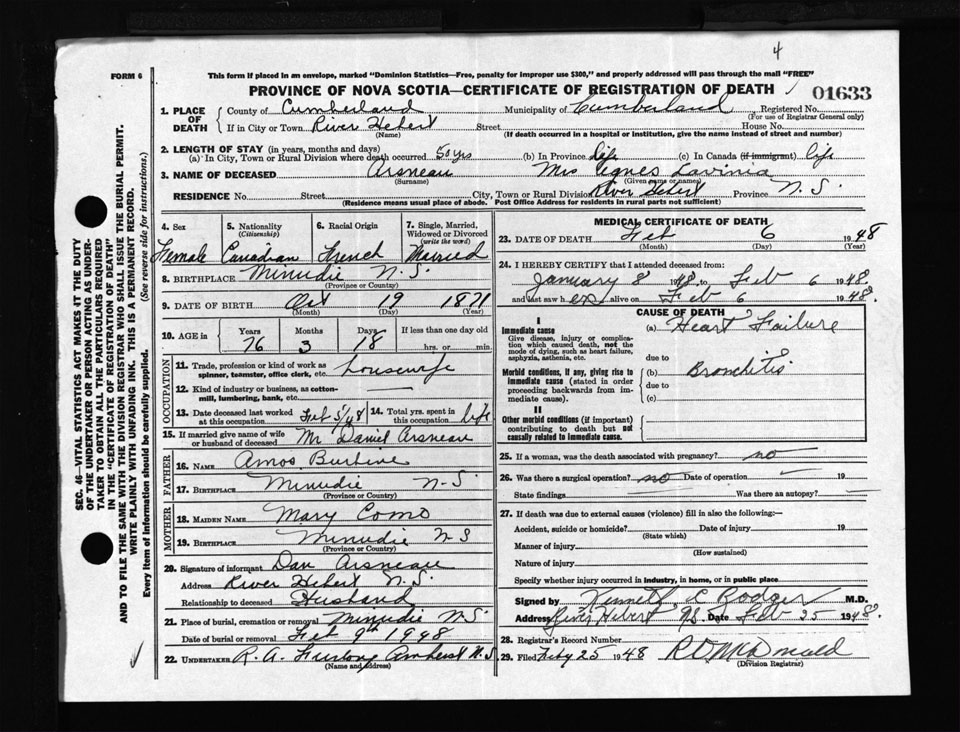 4
FORM 6
This form if placed in an envelope, marked "Dominion Statistics—Free, penalty for improper use $300," and properly addressed will pass through the mail "FREE"
PROVINCE OF NOVA SCOTIA—CERTIFICATE OF REGISTRATION OF DEATH
01633
1. PLACE OF DEATH
County of Cumberland Municipality of Cumberland Registered No.
(For use of Registrar General only)
If in City or Town River Hebert Street House No.
(Name) (If death occurred in a hospital or institution, give the name instead of street and number)
2. LENGTH OF STAY (in years, months and days)
(a) In City, Town or Rural Division where death occurred 50 yrs (b) In Province life (c) In Canada (if immigrant) life
3. NAME OF DECEASED Arsneau Mrs Agnes Lavinia
(Surname) (Given name or names)
RESIDENCE No. Street City, Town or Rural Division River Hebert Province N.S.
(Residence means usual place of abode. Post Office Address for residents in rural parts not sufficient)
4. Sex
Female
5. Nationality
(Citizenship)
Canadian
6. Racial Origin
French
7. Single, Married, Widowed or Divorced
(write the word)
Married
8. BIRTHPLACE Minudie N.S.
(Province or Country)
9. DATE OF BIRTH Oct 19 1871
(Month) (Day) (Year)
10. AGE in Years Months Days If less than one day old
76 3 18 hrs. or min.
OCCUPATION
11. Trade, profession or kind of work as spinner, teamster, office clerk, etc. housewife
12. Kind of industry or business, as cotton-mill, lumbering, bank, etc. —
13. Date deceased last worked at this occupation Feb 5/48
14. Total yrs. spent in this occupation life
15. If married give name of wife or husband of deceased Mr Daniel Arsneau
FATHER
16. NAME Amos Burbine
17. BIRTHPLACE Minudie N.S.
(Province or Country)
MOTHER
18. MAIDEN NAME Mary Como
19. BIRTHPLACE Minudie N S
(Province or Country)
20. Signature of informant Dan Arsneau
Address River Hebert N.S.
Relationship to deceased Husband
21. Place of burial, cremation or removal Minudie N.S.
Date of burial or removal Feb 9th 1948
22. UNDERTAKER R. A. Furlong Amherst N.S.
(Name and address)
MEDICAL CERTIFICATE OF DEATH
23. DATE OF DEATH Feb 6 1948
(Month) (Day)
24. I HEREBY CERTIFY that I attended deceased from:
January 8 1948 to Feb 6 1948.
and last saw her alive on Feb 6 1948.
CAUSE OF DEATH
I
Immediate cause (a) Heart Failure
Give disease, injury or complication which caused death, not the mode of dying, such as heart failure, asphyxia, asthenia, etc.
due to
Morbid conditions, if any, giving rise to immediate cause (stated in order proceeding backwards from immediate cause).
(b) Bronchitis
due to
(c)
II
Other morbid conditions (if important) contributing to death but not causally related to immediate cause.
25. If a woman, was the death associated with pregnancy? no
26. Was there a surgical operation? no Date of operation — 19
State findings — Was there an autopsy? —
27. If death was due to external causes (violence) fill in also the following:—
Accident, suicide or homicide? Date of injury 19
(State which)
Manner of injury
(How sustained)
Nature of injury
Specify whether injury occurred in industry, in home, or in public place
Signed by Kenneth C Rodger M.D.
Address River Hebert N.S. Date Feb 25 1948
28. Registrar's Record Number
29. Filed Feby 25 1948 R D McDonald
(Division Registrar)
SEC. 46—VITAL STATISTICS ACT MAKES IT THE DUTY
OF THE UNDERTAKER OR PERSON ACTING AS UNDER-
TAKER TO OBTAIN ALL THE PARTICULARS REQUIRED
IN THE "CERTIFICATE OF REGISTRATION OF DEATH"
AND TO FILE THE SAME WITH THE DIVISION REGISTRAR WHO SHALL ISSUE THE BURIAL PERMIT.
WRITE PLAINLY WITH UNFADING INK. THIS IS A PERMANENT RECORD.
Every item of information should be carefully supplied. (See reverse side for instructions.)